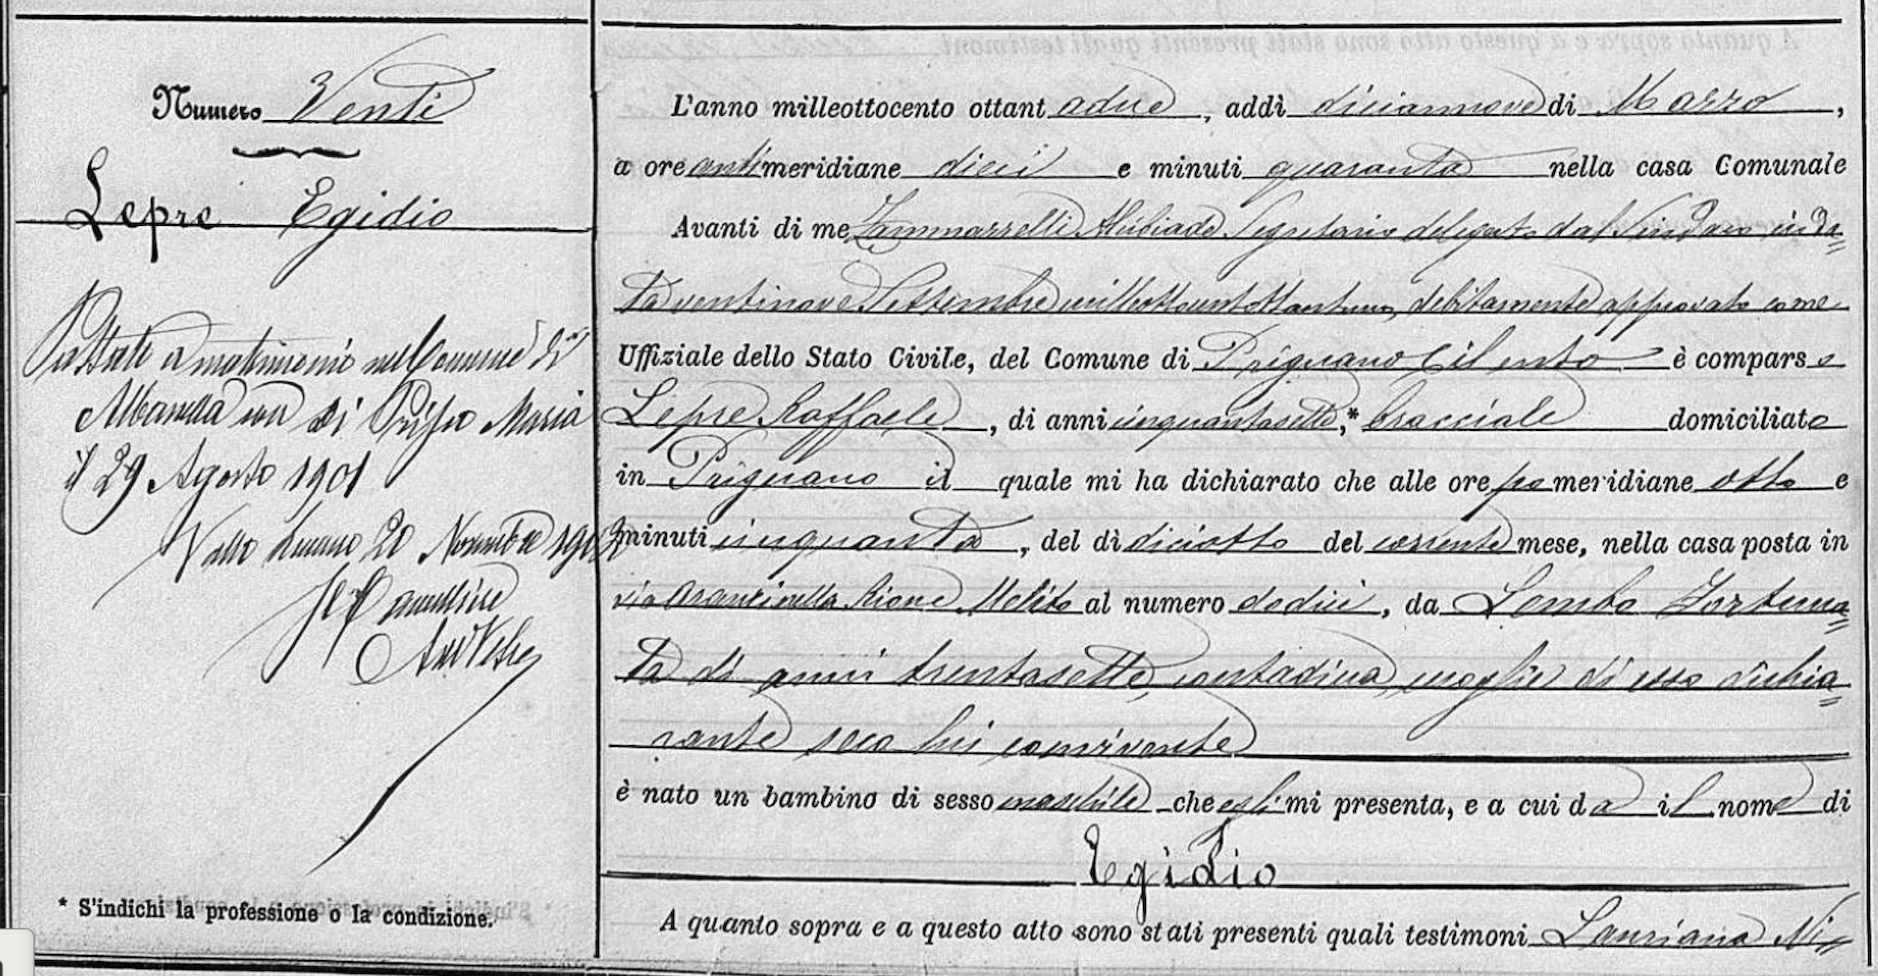 Numero Venti
Lepre Egidio
Passato a matrimonio nel Comune di
Albanella con di Prisco Maria
il 29 Agosto 1901
Vallo Lucano 20 Novembre
* S'indichi la professione o la condizione.
L'anno milleottocento ottantadue, addì diciannove di Marzo,
a ore antimeridiane dieci e minuti quaranta nella casa Comunale
Avanti di me Zammarrelli Alcibiade Segretario delegato dal Sindaco in da=
ta ventinove Settembre milleottocentottantuno, debitamente approvato come
Uffiziale dello Stato Civile, del Comune di Prignano Cilento è comparso
Lepre Raffaele, di anni cinquantasette,* bracciale domiciliato
in Prignano il quale mi ha dichiarato che alle ore pomeridiane otto e
minuti cinquanta, del dì diciotto del corrente mese, nella casa posta in
via Rione Melito al numero dodici, da Lembo Fortuna=
ta di anni trentasette, contadina, moglie di esso dichia=
rante seco lui convivente
è nato un bambino di sesso maschile che egli mi presenta, e a cui da il nome di
Egidio
A quanto sopra e a questo atto sono stati presenti quali testimoni Lauriana Ni=